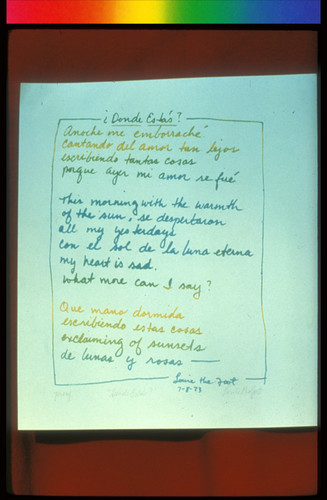 ¿Donde Estás?
Anoche me emborraché
cantando del amor tan lejos
escribiendo tantas cosas
porque ayer mi amor se fué
This morning with the warmth
of the sun, se despertaron
all my yesterdays
con el sol de la luna eterna
my heart is sad.
What more can I say?
Que mano dormida
escribiendo estas cosas
exclaiming of sunsets
de lunas y rosas
Louie the Foot
7-8-73